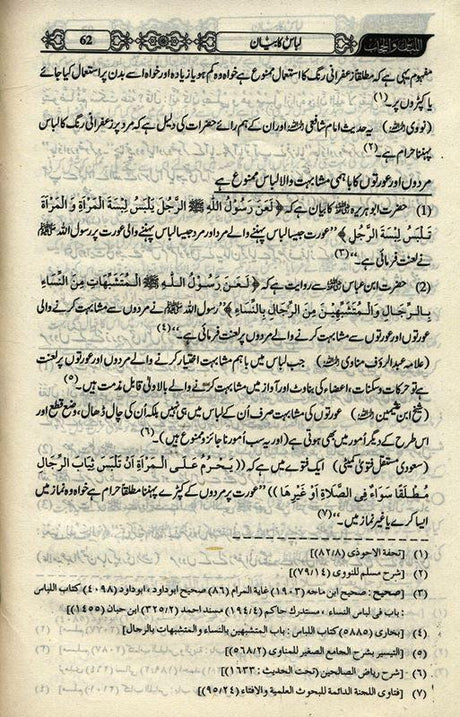 اللباس والحجاب لباس کا بیان 62
مفہوم یہی ہے کہ مطلقا زعفرانی رنگ کا استعمال ممنوع ہے خواہ وہ کم ہو یا زیادہ اور خواہ اسے بدن پر استعمال کیا جائے
یا کپڑوں پر۔(۱)
(نووی رحمہ اللہ) یہ حدیث امام شافعی رحمہ اللہ اور ان کے ہم رائے حضرات کی دلیل ہے کہ مرد پر زعفرانی رنگ کا لباس
پہننا حرام ہے۔(۲)
مردوں اور عورتوں کا باہمی مشابہت والا لباس ممنوع ہے
(1) حضرت ابو ہریرہ رضی اللہ عنہ کا بیان ہے کہ ﴿لَعَنَ رَسُوْلُ اللّٰهِ ﷺ الرَّجُلَ يَلْبَسُ لِبْسَةَ الْمَرْأَةِ وَ الْمَرْأَةَ
تَلْبَسُ لِبْسَةَ الرَّجُلِ﴾ "عورت جیسا لباس پہننے والے مرد اور مرد جیسا لباس پہننے والی عورت پر رسول اللہ ﷺ
نے لعنت فرمائی ہے۔"(۳)
(2) حضرت ابن عباس رضی اللہ عنہ سے روایت ہے کہ ﴿لَعَنَ رَسُوْلُ اللّٰهِ ﷺ الْمُتَشَبِّهَاتِ مِنَ النِّسَاءِ
بِالرِّجَالِ وَالْمُتَشَبِّهِيْنَ مِنَ الرِّجَالِ بِالنِّسَاءِ﴾ "رسول اللہ ﷺ نے مردوں سے مشابہت کرنے والی
عورتوں اور عورتوں سے مشابہت کرنے والے مردوں پر لعنت فرمائی ہے۔"(۴)
(علامہ عبدالرؤف مناوی رحمہ اللہ) جب لباس میں باہم مشابہت اختیار کرنے والے مردوں اور عورتوں پر لعنت
ہے تو حرکات و سکنات، اعضاء کی بناوٹ اور آواز میں مشابہت کرنے والے بالاولیٰ قابل مذمت ہیں۔(۵)
(شیخ ابن عثیمین رحمہ اللہ) عورتوں کی مشابہت صرف اُن کے لباس میں ہی نہیں بلکہ اُن کی چال ڈھال، وضع قطع اور
اس طرح کے دیگر اُمور میں بھی ہوتی ہے (اور یہ سب اُمور ناجائز و ممنوع ہیں)۔(۶)
(سعودی مستقل فتویٰ کمیٹی) ایک فتوے میں ہے کہ ((يَحْرُمُ عَلَى الْمَرْأَةِ أَنْ تَلْبَسَ ثِيَابَ الرِّجَالِ
مُطْلَقًا سَوَاءٌ فِي الصَّلَاةِ أَوْ غَيْرِهَا)) "عورت پر مردوں کے کپڑے پہننا مطلقا حرام ہے خواہ وہ نماز میں
ایسا کرے یا غیر نماز میں۔"(۷)
(۱) [تحفة الاحوذی (۸۲/۸)]
(۲) [شرح مسلم للنووی (۷۹/۱۴)]
(۳) [صحیح : صحیح ابن ماجه (۱۹۰۳) غایة المرام (۸۶) صحیح ابو داود ، ابو داود (۴۰۹۸) کتاب اللباس
: باب فی لباس النساء ، مستدرك حاكم (۱۹۴/۴) مسند احمد (۳۲۵/۲) ابن حبان (۱۴۵۵)]
(۴) [بخاری (۵۸۸۵) کتاب اللباس : باب المتشبهين بالنساء والمتشبهات بالرجال]
(۵) [التیسیر بشرح الجامع الصغیر للمناوی (۵۶۸/۲)]
(۶) [شرح ریاض الصالحین (تحت الحدیث : ۱۶۳۳)]
(۷) [فتاوی اللجنة الدائمة للبحوث العلمية والافتاء (۹۵/۲۴)]